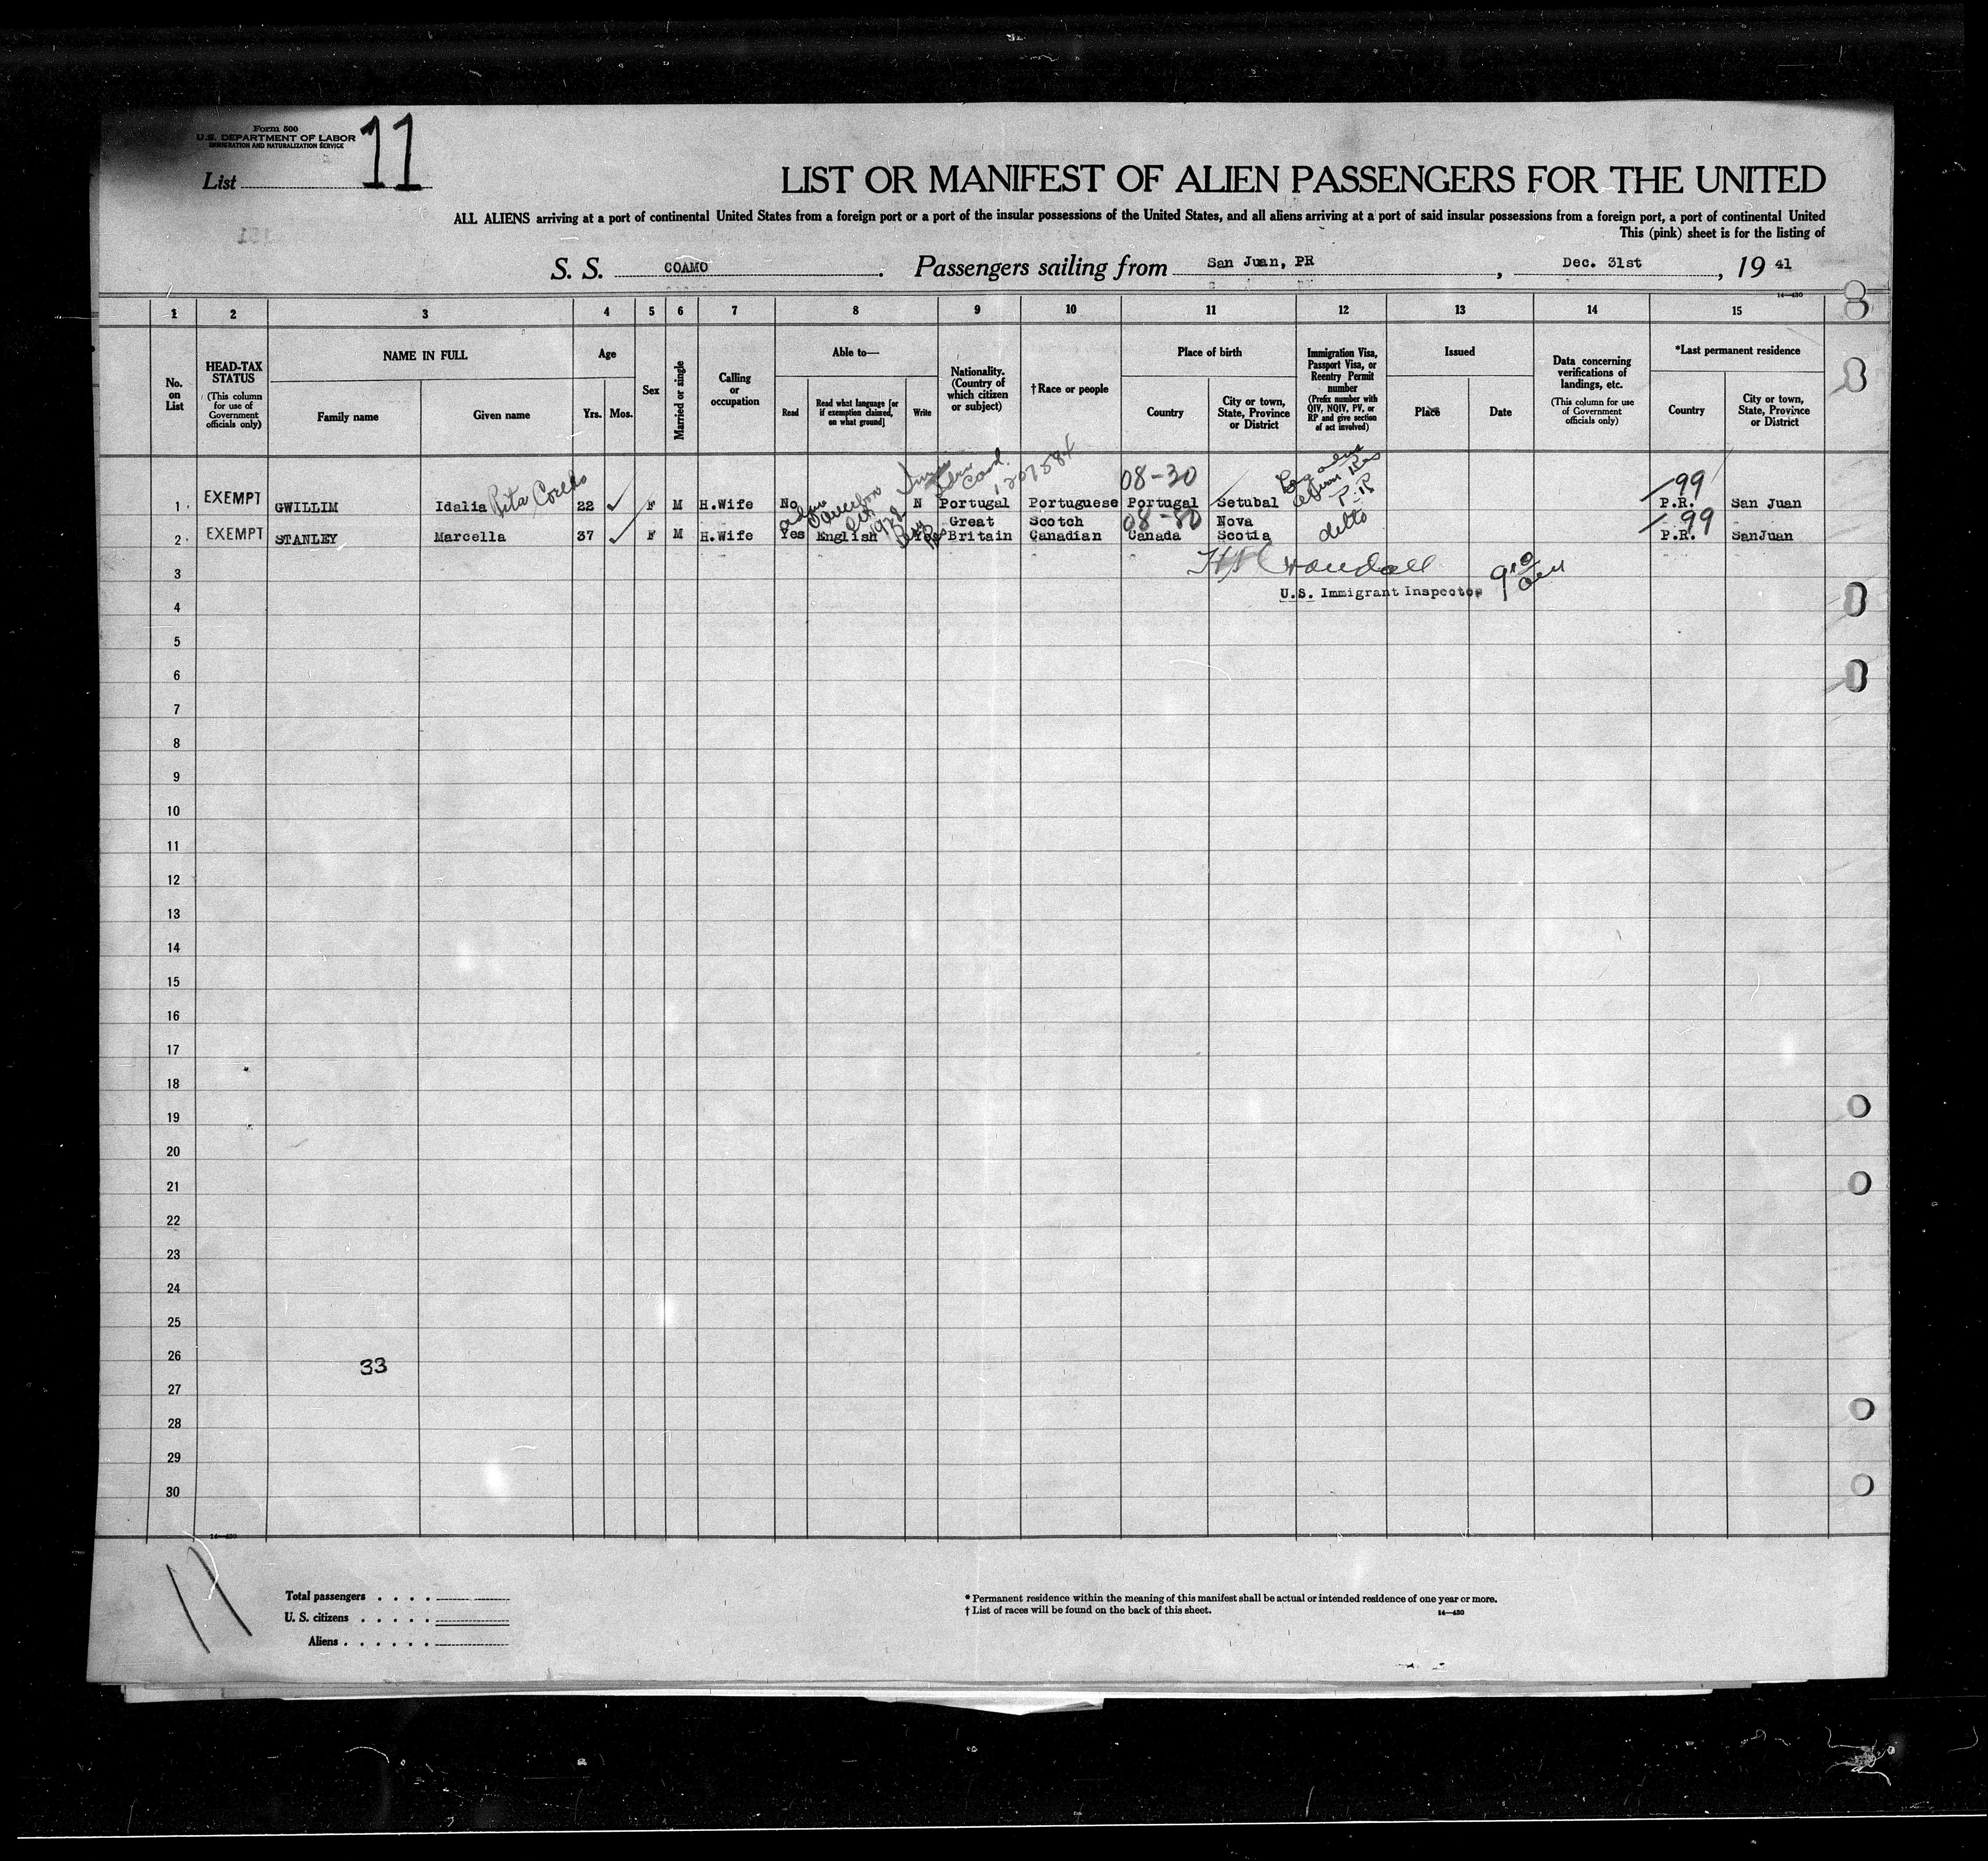 Form 500
U.S. DEPARTMENT OF LABOR
IMMIGRATION AND NATURALIZATION SERVICE
List 11
LIST OR MANIFEST OF ALIEN PASSENGERS FOR THE UNITED
ALL ALIENS arriving at a port of continental United States from a foreign port or a port of the insular possessions of the United States, and all aliens arriving at a port of said insular possessions from a foreign port, a port of continental United
This (pink) sheet is for the listing of
S. S. COAMO. Passengers sailing from San Juan, PR, Dec. 31st, 19 41
14—430
1 2 3 4 5 6 7 8 9 10 11 12 13 14 15
No. on List
HEAD-TAX STATUS
(This column for use of Government officials only)
NAME IN FULL
Family name
Given name
Age
Yrs. Mos.
Sex
Married or single
Calling or occupation
Able to—
Read
Read what language [or if exemption claimed, on what ground]
Write
Nationality. (Country of which citizen or subject)
† Race or people
Place of birth
Country
City or town, State, Province or District
Immigration Visa, Passport Visa, or Reentry Permit number
(Prefix number with QIV, NQIV, PV, or RP and give section of act involved)
Issued
Place
Date
Data concerning verifications of landings, etc.
(This column for use of Government officials only)
*Last permanent residence
Country
City or town, State, Province or District
08-30
99
1 EXEMPT GWILLIM Idalia Rita Coelho 22 ✓ F M H.Wife No N Portugal Portuguese Portugal Setubal P.R. San Juan
1942
Great Scotch 08-80 Nova ditto 99
2 EXEMPT STANLEY Marcella 37 ✓ F M H.Wife Yes English Yes Britain Canadian Canada Scotia P.R. SanJuan
3
U.S. Immigrant Inspector
4
5
6
7
8
9
10
11
12
13
14
15
16
17
18
19
20
21
22
23
24
25
26
33
27
28
29
30
14—430
11
Total passengers . . . .
U. S. citizens . . . . .
Aliens . . . . . .
* Permanent residence within the meaning of this manifest shall be actual or intended residence of one year or more.
† List of races will be found on the back of this sheet.
14—430